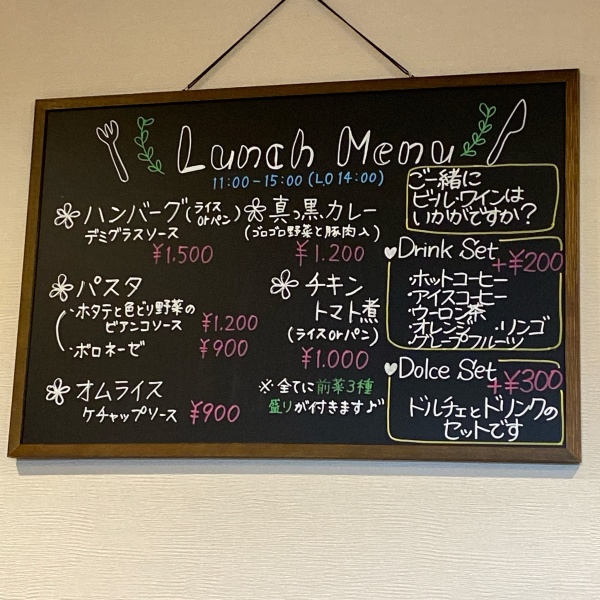 Lunch Menu
11:00-15:00 (L.O 14:00)
ハンバーグ(ライスorパン)
デミグラスソース
¥1.500
パスタ
・ホタテと色どり野菜の
ビアンコソース ¥1.200
・ボロネーゼ ¥900
オムライス
ケチャップソース ¥900
真っ黒カレー
(ゴロゴロ野菜と豚肉入)
¥1.200
チキン
トマト煮
(ライスorパン)
¥1.000
※全てに前菜3種
盛りが付きます♪
ご一緒に
ビール・ワインは
いかがですか?
Drink Set
+¥200
・ホットコーヒー
・アイスコーヒー
・ウーロン茶
・オレンジ ・リンゴ
・グレープフルーツ
Dolce Set
+¥300
ドルチェとドリンクの
セットです